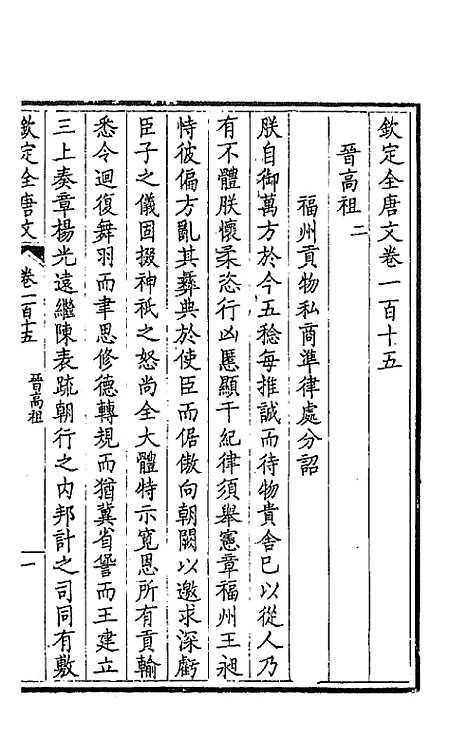 欽定全唐文卷一百十五
晉高祖二
福州貢物私商準律處分詔
朕自御萬方於今五稔每推誠而待物貴舍已以從人乃
有不體朕懷柔恣行凶慝顯干紀律須舉憲章福州王昶
恃彼偏方亂其彞典於使臣而倨傲向朝闕以邀求深虧
臣子之儀固掇神祇之怒尚全大體特示寬恩所有貢輸
悉令迴復舞羽而聿思修德轉規而猶冀省諐而王建立
三上奏章楊光遠繼陳表疏朝行之內邦計之司同有敷
欽定全唐文 卷一百十五 晉高祖 一